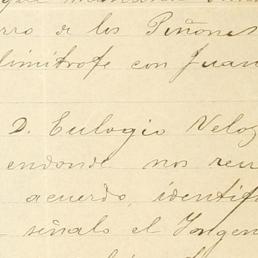 rro de los Piñones
limitrofe con Juan
D. Eulogio Veloz
endonde nos reu
acuerdo, identif
señalo el Ingen